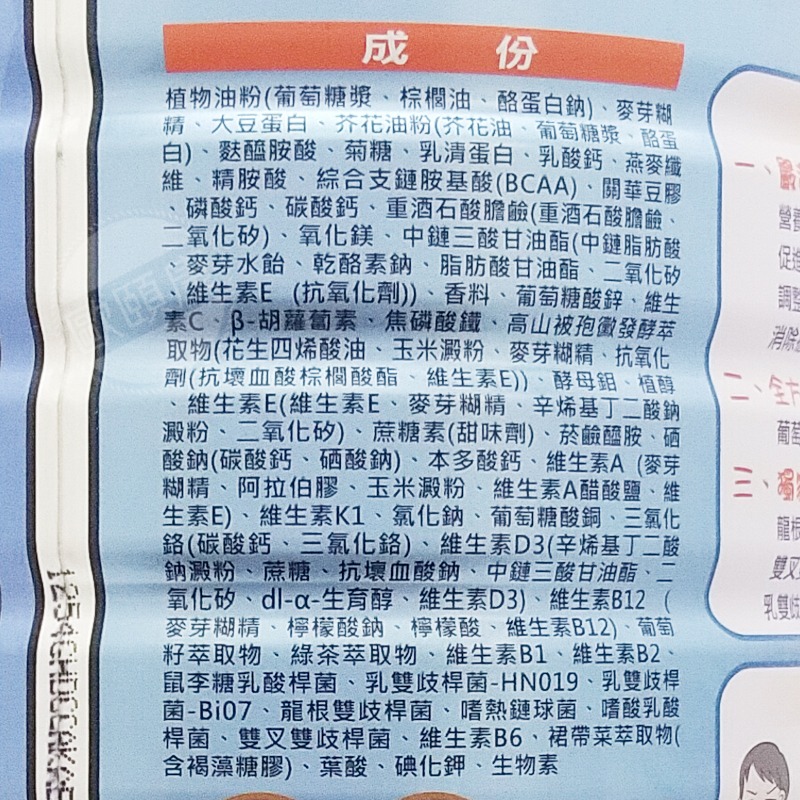 成 份
植物油粉(葡萄糖漿、棕櫚油、酪蛋白鈉)、麥芽糊
精、大豆蛋白、芥花油粉(芥花油、葡萄糖漿、酪蛋
白)、麩醯胺酸、菊糖、乳清蛋白、乳酸鈣、燕麥纖
維、精胺酸、綜合支鏈胺基酸(BCAA)、關華豆膠
、磷酸鈣、碳酸鈣、重酒石酸膽鹼(重酒石酸膽鹼、
二氧化矽)、氧化鎂、中鏈三酸甘油酯(中鏈脂肪酸
、麥芽水飴、乾酪素鈉、脂肪酸甘油酯、二氧化矽
、維生素E (抗氧化劑))、香料、葡萄糖酸鋅、維生
素C、β-胡蘿蔔素、焦磷酸鐵、高山被孢黴發酵萃
取物(花生四烯酸油、玉米澱粉、麥芽糊精、抗氧化
劑(抗壞血酸棕櫚酸酯、維生素E))、酵母鉬、植醇
、維生素E(維生素E、麥芽糊精、辛烯基丁二酸鈉
澱粉、二氧化矽)、蔗糖素(甜味劑)、菸鹼醯胺、硒
酸鈉(碳酸鈣、硒酸鈉)、本多酸鈣、維生素A (麥芽
糊精、阿拉伯膠、玉米澱粉、維生素A醋酸鹽、維
生素E)、維生素K1、氯化鈉、葡萄糖酸銅、三氯化
鉻(碳酸鈣、三氯化鉻)、維生素D3(辛烯基丁二酸
鈉澱粉、蔗糖、抗壞血酸鈉、中鏈三酸甘油酯、二
氧化矽、dl-α-生育醇、維生素D3)、維生素B12 (
麥芽糊精、檸檬酸鈉、檸檬酸、維生素B12)、葡萄
籽萃取物、綠茶萃取物、維生素B1、維生素B2、
鼠李糖乳酸桿菌、乳雙歧桿菌-HN019、乳雙歧桿
菌-Bi07、龍根雙歧桿菌、嗜熱鏈球菌、嗜酸乳酸
桿菌、雙叉雙歧桿菌、維生素B6、裙帶菜萃取物(
含褐藻糖膠)、葉酸、碘化鉀、生物素
一、
營養
促進
調整
消除
二、全
葡萄
三、獨
龍根
雙叉
乳雙歧